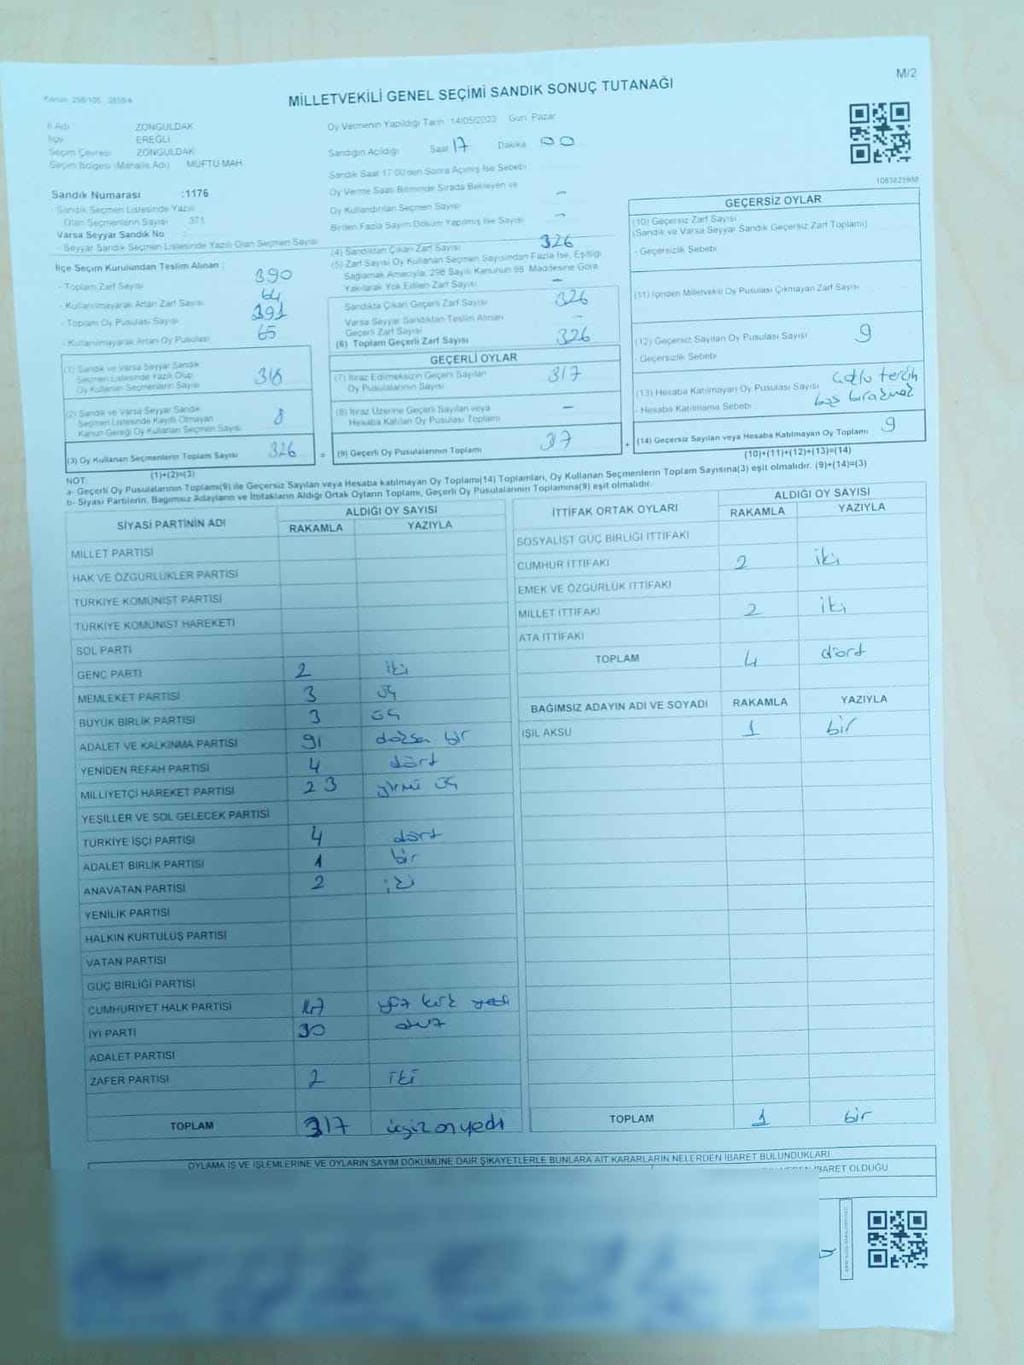 M/2
MİLLETVEKİLİ GENEL SEÇİMİ SANDIK SONUÇ TUTANAĞI
İl Adı ZONGULDAK
İlçe EREĞLİ
Seçim Çevresi ZONGULDAK
Seçim Bölgesi (Mahalle Adı) MÜFTÜ MAH
Sandık Numarası :1176
Sandık Seçmen Listesinde Yazılı
Olan Seçmenlerin Sayısı 371
Varsa Seyyar Sandık No
- Seyyar Sandık Seçmen Listesinde Yazılı Olan Seçmen Sayısı
İlçe Seçim Kurulundan Teslim Alınan :
- Toplam Zarf Sayısı 390
- Kullanılmayarak Artan Zarf Sayısı 64
- Toplam Oy Pusulası Sayısı 391
- Kullanılmayarak Artan Oy Pusulası 65
(1) Sandık ve Varsa Seyyar Sandık
Seçmen Listesinde Yazılı Olup
Oy Kullanan Seçmenlerin Sayısı 318
(2) Sandık ve Varsa Seyyar Sandık
Seçmen Listesinde Kayıtlı Olmayan
Kanun Gereği Oy Kullanan Seçmen Sayısı 8
(3) Oy Kullanan Seçmenlerin Toplam Sayısı 326
(1)+(2)=(3)
Oy Vermenin Yapıldığı Tarih 14/05/2023 Gün Pazar
Sandığın Açıldığı Saat 17 Dakika 00
Sandık Saat 17:00'den Sonra Açılmış İse Sebebi
Oy Verme Saati Bitiminde Sırada Bekleyen ve
Oy Kullandırılan Seçmen Sayısı –
Birden Fazla Sayım Döküm Yapılmış İse Sayısı –
(4) Sandıktan Çıkan Zarf Sayısı 326
(5) Zarf Sayısı Oy Kullanan Seçmen Sayısından Fazla İse, Eşitliği
Sağlamak Amacıyla, 298 Sayılı Kanunun 98. Maddesine Göre
Yakılarak Yok Edilen Zarf Sayısı –
Sandıkta Çıkan Geçerli Zarf Sayısı 326
Varsa Seyyar Sandıktan Teslim Alınan
Geçerli Zarf Sayısı –
(6) Toplam Geçerli Zarf Sayısı 326
GEÇERLİ OYLAR
(7) İtiraz Edilmeksizin Geçerli Sayılan
Oy Pusulalarının Sayısı 317
(8) İtiraz Üzerine Geçerli Sayılan veya
Hesaba Katılan Oy Pusulası Toplamı –
(9) Geçerli Oy Pusulalarının Toplamı 317
GEÇERSİZ OYLAR
(10) Geçersiz Zarf Sayısı
(Sandık ve Varsa Seyyar Sandık Geçersiz Zarf Toplamı)
- Geçersizlik Sebebi
(11) İçinden Milletvekili Oy Pusulası Çıkmayan Zarf Sayısı
(12) Geçersiz Sayılan Oy Pusulası Sayısı 9
- Geçersizlik Sebebi
(13) Hesaba Katılmayan Oy Pusulası Sayısı
- Hesaba Katılmama Sebebi
çoklu tercih
boş bırakmak
(14) Geçersiz Sayılan veya Hesaba Katılmayan Oy Toplamı 9
(10)+(11)+(12)+(13)=(14)
NOT:
a- Geçerli Oy Pusulalarının Toplamı(9) ile Geçersiz Sayılan veya Hesaba katılmayan Oy Toplamı(14) Toplamları, Oy Kullanan Seçmenlerin Toplam Sayısına(3) eşit olmalıdır. (9)+(14)=(3)
b- Siyasi Partilerin, Bağımsız Adayların ve İttifakların Aldığı Ortak Oyların Toplamı, Geçerli Oy Pusulalarının Toplamına(9) eşit olmalıdır.
SİYASİ PARTİNİN ADI ALDIĞI OY SAYISI
RAKAMLA YAZIYLA
MİLLET PARTİSİ
HAK VE ÖZGÜRLÜKLER PARTİSİ
TÜRKİYE KOMÜNİST PARTİSİ
TÜRKİYE KOMÜNİST HAREKETİ
SOL PARTİ
GENÇ PARTİ 2 iki
MEMLEKET PARTİSİ 3 üç
BÜYÜK BİRLİK PARTİSİ 3 üç
ADALET VE KALKINMA PARTİSİ 91 doksan bir
YENİDEN REFAH PARTİSİ 4 dört
MİLLİYETÇİ HAREKET PARTİSİ 23 yirmi üç
YEŞİLLER VE SOL GELECEK PARTİSİ
TÜRKİYE İŞÇİ PARTİSİ 4 dört
ADALET BİRLİK PARTİSİ 1 bir
ANAVATAN PARTİSİ 2 iki
YENİLİK PARTİSİ
HALKIN KURTULUŞ PARTİSİ
VATAN PARTİSİ
GÜÇ BİRLİĞİ PARTİSİ
CUMHURİYET HALK PARTİSİ 147 yüz kırk yedi
İYİ PARTİ 30 otuz
ADALET PARTİSİ
ZAFER PARTİSİ 2 iki
TOPLAM 317 üçyüz on yedi
İTTİFAK ORTAK OYLARI ALDIĞI OY SAYISI
RAKAMLA YAZIYLA
SOSYALİST GÜÇ BİRLİĞİ İTTİFAKI
CUMHUR İTTİFAKI 2 iki
EMEK VE ÖZGÜRLÜK İTTİFAKI
MİLLET İTTİFAKI 2 iki
ATA İTTİFAKI
TOPLAM 4 dört
BAĞIMSIZ ADAYIN ADI VE SOYADI RAKAMLA YAZIYLA
IŞIL AKSU 1 bir
TOPLAM 1 bir
OYLAMA İŞ VE İŞLEMLERİNE VE OYLARIN SAYIM DÖKÜMÜNE DAİR ŞİKAYETLERLE BUNLARA AİT KARARLARIN NELERDEN İBARET BULUNDUKLARI
İBARET OLDUĞU